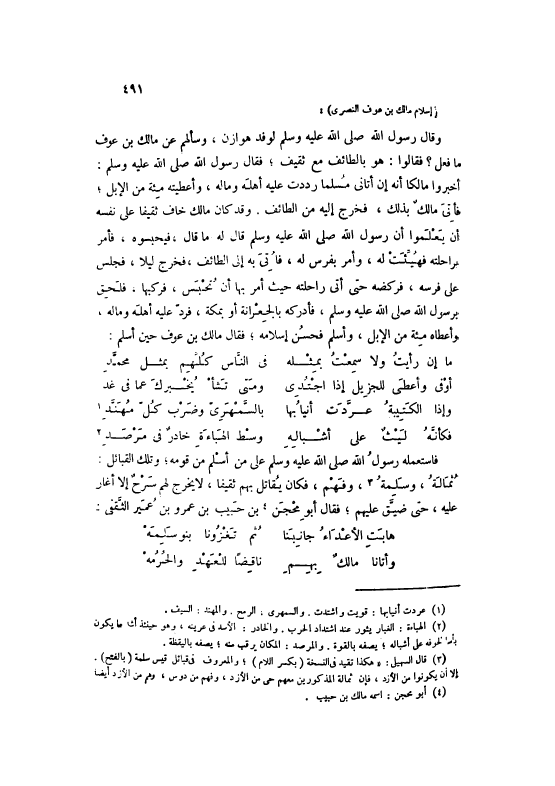 ٤٩١
(إسلام مالك بن عوف النصرى) :
وقال رسول الله صلى الله عليه وسلم لوفد هوازن ، وسألهم عن مالك بن عوف
ما فعل ؟ فقالوا : هو بالطائف مع ثقيف ؛ فقال رسول الله صلى الله عليه وسلم :
أخبروا مالكا أنه إن أتانى مُسلما رددت عليه أهلَه وماله ، وأعطيته مِئة من الإبل ؛
فأُتِىَ مالكٌ بذلك ، فخرج إليه من الطائف . وقد كان مالك خاف ثقيفا على نفسه
أن يَعْلَموا أن رسول الله صلى الله عليه وسلم قال له ما قال ، فيحبسوه ، فأمر
براحلته فهُيِّئَتْ له ، وأمر بفرس له ، فأُتِىَ به إلى الطائف ، فخرج ليلا ، فجلس
على فرسه ، فركضه حتى أتى راحلته حيث أمر بها أن تُحْبَس ، فركبها ، فلَحِق
برسول الله صلى الله عليه وسلم ، فأدركه بالجِعْرانة أو بمكة ، فردّ عليه أهلَه وماله ،
وأعطاه مِئة من الإبل ، وأسلم فحسُن إسلامه ؛ فقال مالك بن عوف حين أسلم :
ما إن رأيتُ ولا سمِعْتُ بمِثْله فى النَّاس كُلِّهِم بمثل محمَّدِ
أوْفى وأعطَى للجزيل إذا اجتُدِى ومَتى تَشأْ يُخْبِرك عما فى غد
وإذا الكَتِيبةُ عَرَّدَت أنيابُها بالسَّمْهَرِىّ وضَرْب كُلّ مُهَنَّدِ ١
فكأنَّهُ لَيْثٌ على أشْبالِهِ وسْط الهَباءَة خادرٌ فى مَرْصَدِ ٢
فاستعمله رسولُ الله صلى الله عليه وسلم على من أسْلم من قومه ؛ وتلك القبائل :
ثُمَالَةُ ، وسَلِمَةُ ٣ ، وفَهْمُ ، فكان يُقاتل بهم ثقيفا ، لايخرج لهم سَرْحٌ إلا أغار
عليه ، حتى ضيَّق عليهم ؛ فقال أبو مِحْجَن ٤ بن حَبيب بن عمرو بن عُمَير الثَّقفى :
هابَتِ الأعْداءُ جانِبَنا ثُم تَغْزُونا بنو سَلِمَهْ
وأتانا مالكٌ بِهِمِ ناقِضًا للعَهْدِ والحُرُمَهْ
(١) عردت أنيابها : قويت واشتدت . والسمهرى : الرمح . والمهند : السيف .
(٢) الهباءة : الغبار يثور عند اشتداد الحرب . والخادر : الأسد فى عرينه ، وهو حينئذ أشد ما يكون
بأسا لخوفه على أشباله ؛ يصفه بالقوة . والمرصد : المكان يرقب منه ؛ يصفه باليقظة .
(٣) قال السهيل : « هكذا تقيد فى النسخة (بكسر اللام) ؛ والمعروف فى قبائل قيس سلمة (بالفتح) .
إلا أن يكونوا من الأزد ، فإن ثمالة المذكورين معهم حى من الأزد ، وفهم من دوس ، وهم من الأزد أيضا
(٤) أبو محجن : اسمه مالك بن حبيب .